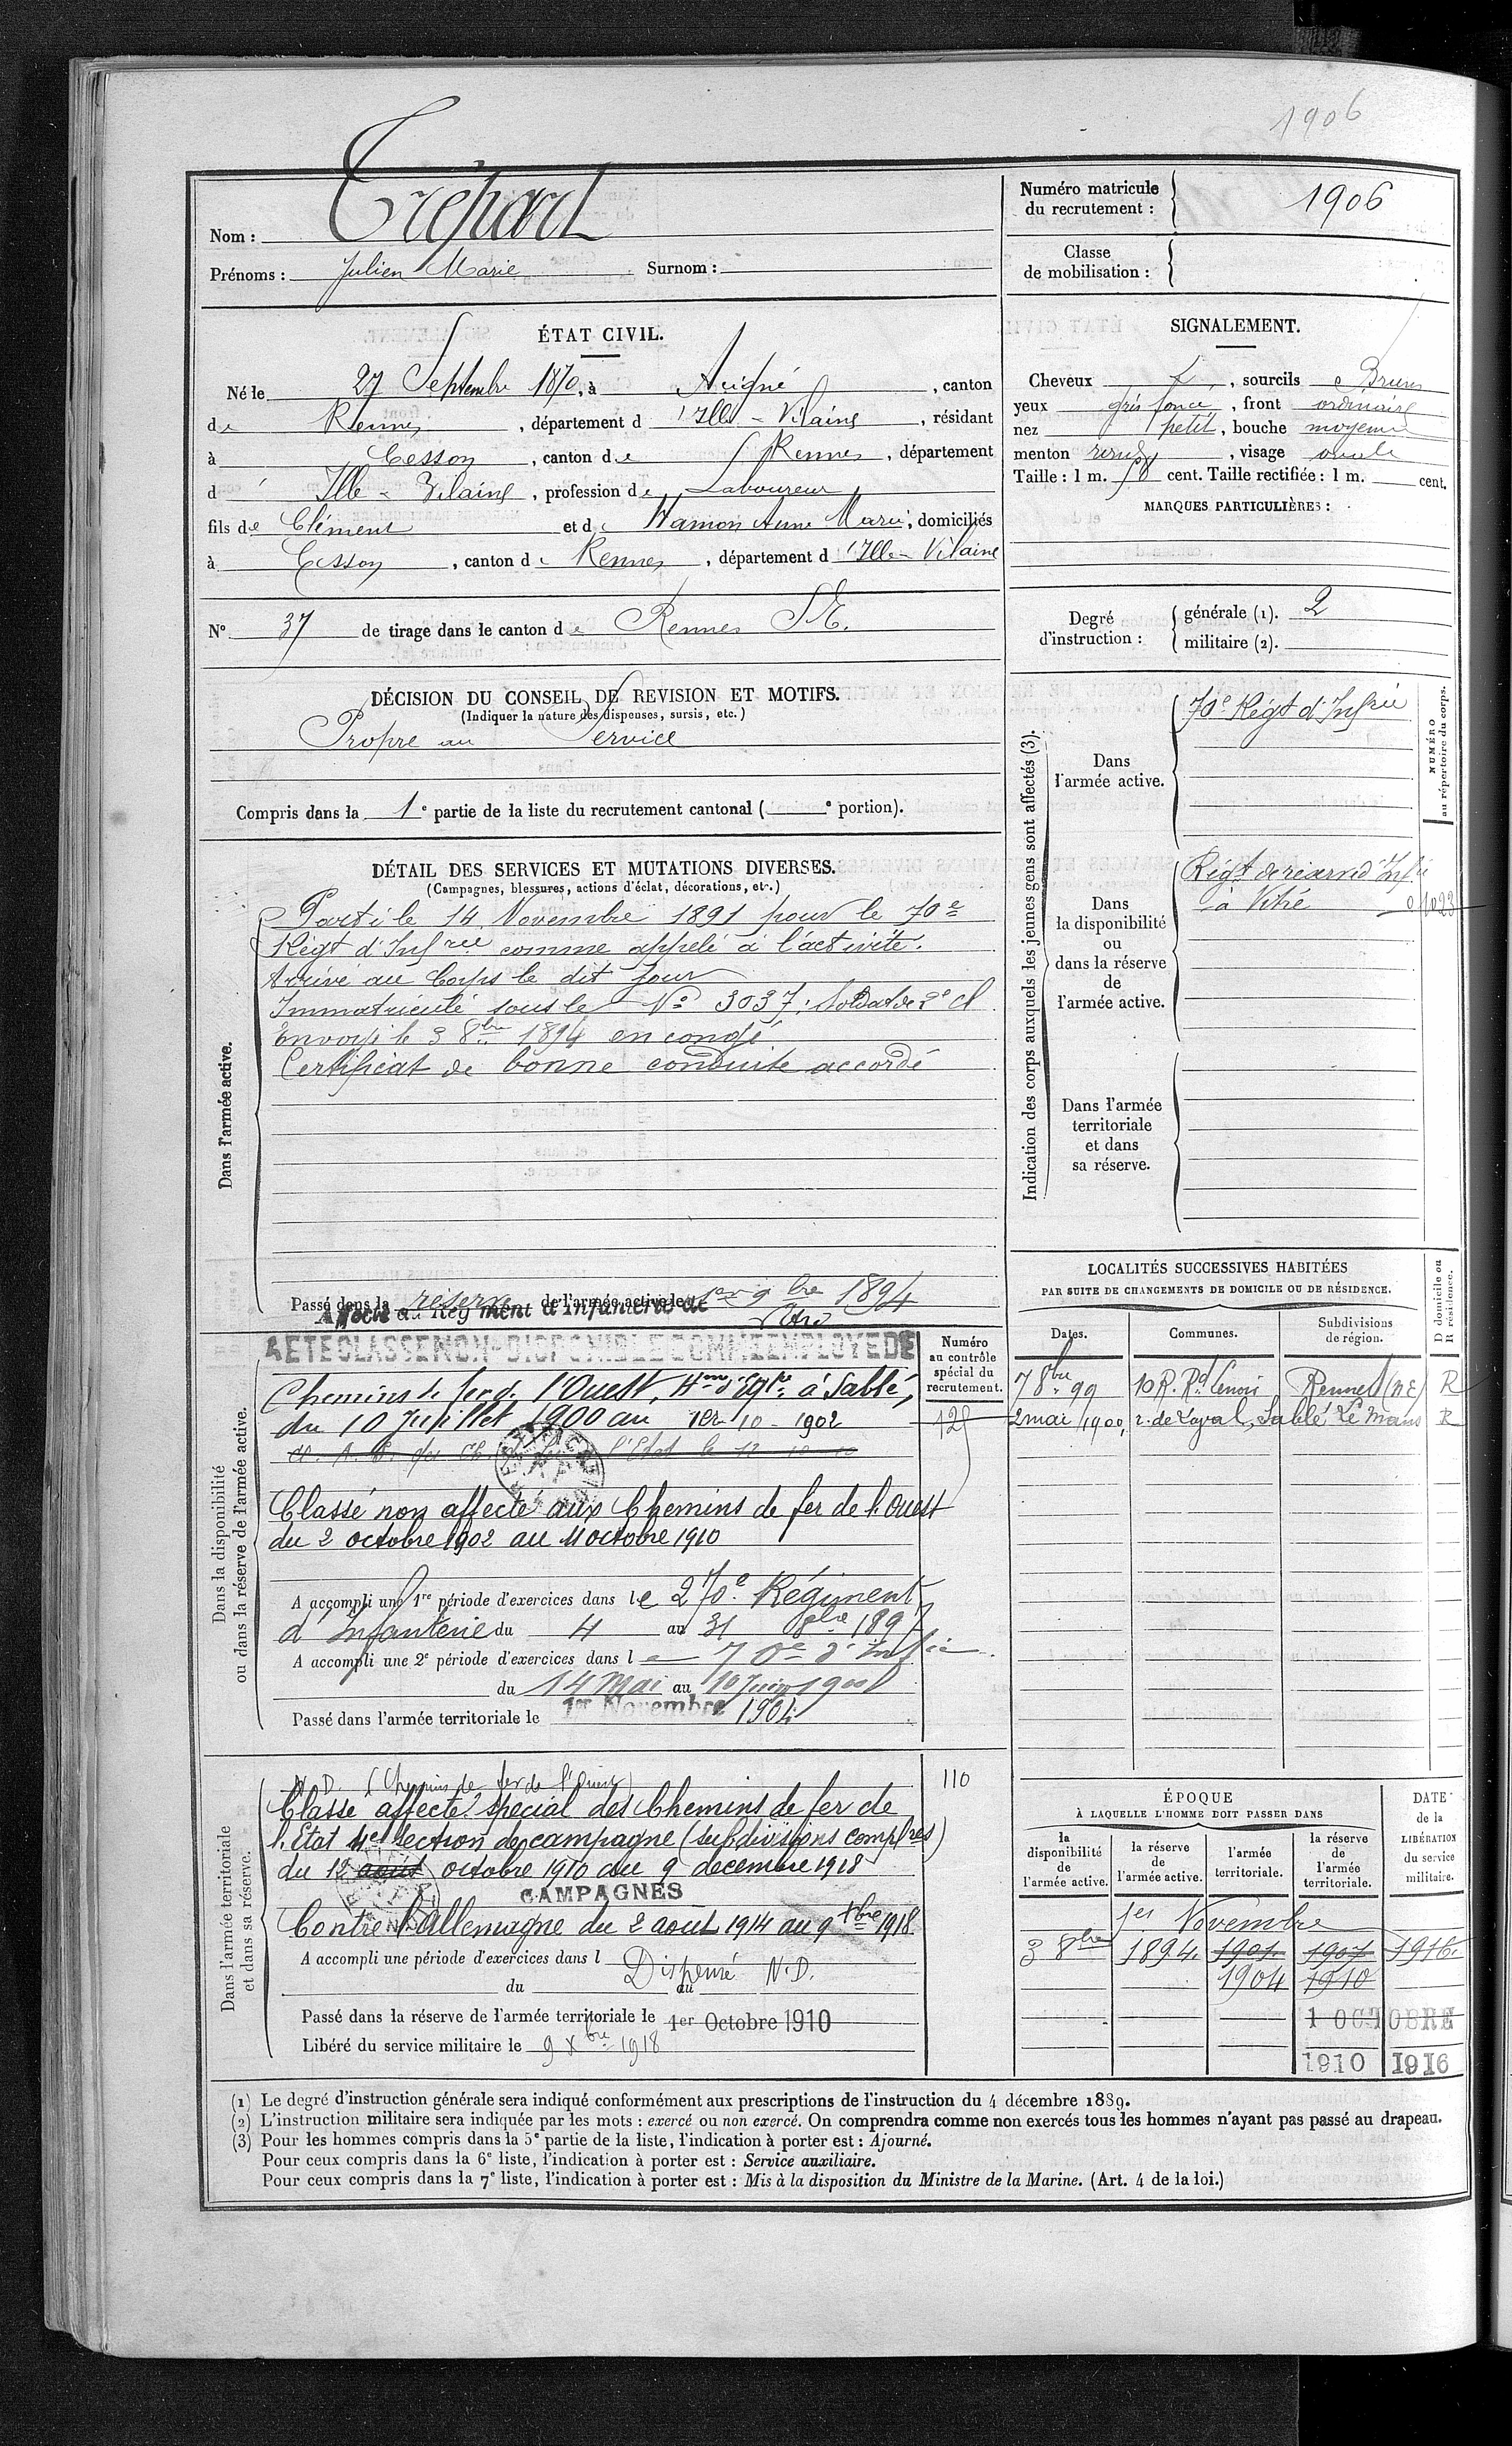 1906
Nom : Tréhard
Prénoms : Julien Marie Surnom :
Numéro matricule du recrutement : 1906
Classe de mobilisation :
ÉTAT CIVIL.
Né le 27 Septembre 1870, à Acigné, canton
de Rennes, département d'Ille-Vilaine, résidant
à Cesson, canton de Rennes, département
d Ille-Vilaine, profession de Laboureur
fils de Clément et de Hamon Anne Marie, domiciliés
à Cesson, canton de Rennes, département d'Ille-Vilaine
N° 37 de tirage dans le canton de Rennes S.E.
SIGNALEMENT.
Cheveux , sourcils Bruns
yeux gris foncé, front ordinaire
nez petit, bouche moyenne
menton rond, visage ovale
Taille : 1 m. cent. Taille rectifiée : 1 m. cent.
MARQUES PARTICULIÈRES :
Degré d'instruction : générale (1). 2
militaire (2).
DÉCISION DU CONSEIL DE REVISION ET MOTIFS.
(Indiquer la nature des dispenses, sursis, etc.)
Propre au Service
Compris dans la 1e partie de la liste du recrutement cantonal ( e portion).
DÉTAIL DES SERVICES ET MUTATIONS DIVERSES.
(Campagnes, blessures, actions d'éclat, décorations, etc.)
Dans l'armée active.
Parti le 14 Novembre 1891 pour le 70e
Régt d'Infrie comme appelé à l'activité.
Arrivé au Corps le dit jour
Immatriculé sous le No 3037. Soldat de 2e cl
Envoyé le 3 8bre 1894 en congé
Certificat de bonne conduite accordé
Passé dans la réserve de l'armée active le 1er 9bre 1894
Affecté au Régiment d'Infanterie de Vitré
Indication des corps auxquels les jeunes gens sont affectés (3).
NUMÉRO au répertoire du corps.
Dans l'armée active.
70e Régt d'Infrie
Dans la disponibilité ou dans la réserve de l'armée active.
Régt de réserve d'Infie
à Vitré 01023
Dans l'armée territoriale et dans sa réserve.
Dans la disponibilité ou dans la réserve de l'armée active.
Numéro au contrôle spécial du recrutement.
A ETE CLASSE NON-DISPONIBLE COMME EMPLOYE DE
Chemins de fer de l'Ouest, à Sablé,
du 10 Juillet 1900 au 1er 10 - 1902
125
l'Etat le 12 10 10
Classé non affecté aux Chemins de fer de l'Ouest
du 2 octobre 1902 au 11 octobre 1910
A accompli une 1re période d'exercices dans le 270e Régiment
d'Infanterie du 4 au 31 8bre 1897
A accompli une 2e période d'exercices dans le 70e d'Infie
du 14 Mai au 10 Juin 1900
Passé dans l'armée territoriale le 1er Novembre 1904
LOCALITÉS SUCCESSIVES HABITÉES
PAR SUITE DE CHANGEMENTS DE DOMICILE OU DE RÉSIDENCE.
D domicile ou R résidence.
Dates. Communes. Subdivisions de région.
7 8bre 99 10 R. Rd Lenoir Rennes (NE) R
2 mai 1900, r. de Laval, Sablé Le Mans R
Dans l'armée territoriale et dans sa réserve.
N.D. (Chemins de fer de l'Ouest) 110
Classé affecté spécial des Chemins de fer de
l'Etat 4e section de campagne (subdivisions complres)
du 12 août octobre 1910 au 9 décembre 1918
CAMPAGNES
Contre l'Allemagne du 2 août 1914 au 9 xbre 1918
A accompli une période d'exercices dans l
Dispensé N.D.
du au
Passé dans la réserve de l'armée territoriale le 1er Octobre 1910
Libéré du service militaire le 9 xbre 1918
ÉPOQUE
À LAQUELLE L'HOMME DOIT PASSER DANS
la disponibilité de l'armée active. la réserve de l'armée active. l'armée territoriale. la réserve de l'armée territoriale.
DATE de la LIBÉRATION du service militaire.
1er Novembre
3 8bre 1894 1901 1907 1916
1904 1910
1 OCTOBRE
1910 1916
(1) Le degré d'instruction générale sera indiqué conformément aux prescriptions de l'instruction du 4 décembre 1889.
(2) L'instruction militaire sera indiquée par les mots : exercé ou non exercé. On comprendra comme non exercés tous les hommes n'ayant pas passé au drapeau.
(3) Pour les hommes compris dans la 5e partie de la liste, l'indication à porter est : Ajourné.
Pour ceux compris dans la 6e liste, l'indication à porter est : Service auxiliaire.
Pour ceux compris dans la 7e liste, l'indication à porter est : Mis à la disposition du Ministre de la Marine. (Art. 4 de la loi.)